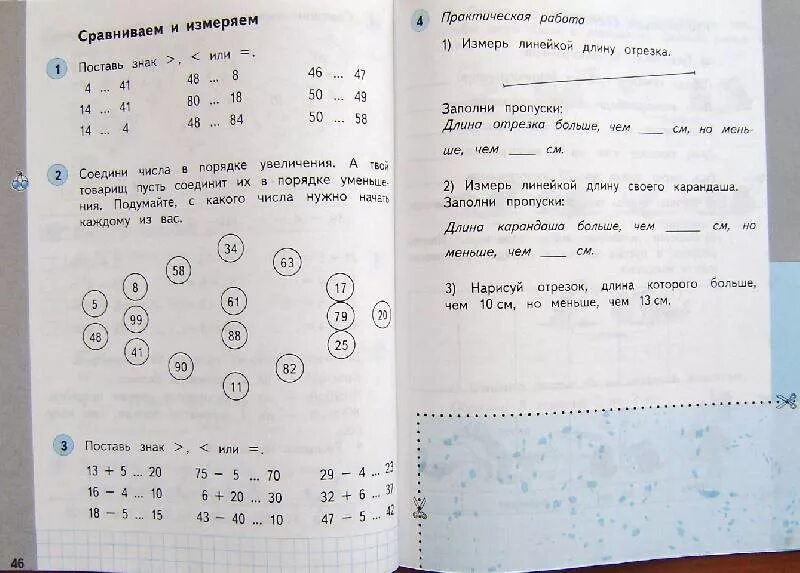 Сравниваем и измеряем
1 Поставь знак >, < или =.
4 ... 41 48 ... 8 46 ... 47
14 ... 41 80 ... 18 50 ... 49
14 ... 4 48 ... 84 50 ... 58
2 Соедини числа в порядке увеличения. А твой
товарищ пусть соединит их в порядке уменьше-
ния. Подумайте, с какого числа нужно начать
каждому из вас.
34
58 63
8 17
5 61
99 79 20
48 88
41 25
90 82
11
3 Поставь знак >, < или =.
13 + 5 ... 20 75 − 5 ... 70 29 − 4 ... 23
16 − 4 ... 10 6 + 20 ... 30 32 + 6 ... 37
18 − 5 ... 15 43 − 40 ... 10 47 − 5 ... 42
46
4 Практическая работа
1) Измерь линейкой длину отрезка.
Заполни пропуски:
Длина отрезка больше, чем ___ см, но мень-
ше, чем ___ см.
2) Измерь линейкой длину своего карандаша.
Заполни пропуски:
Длина карандаша больше, чем ___ см, но
меньше, чем ___ см.
3) Нарисуй отрезок, длина которого больше,
чем 10 см, но меньше, чем 13 см.